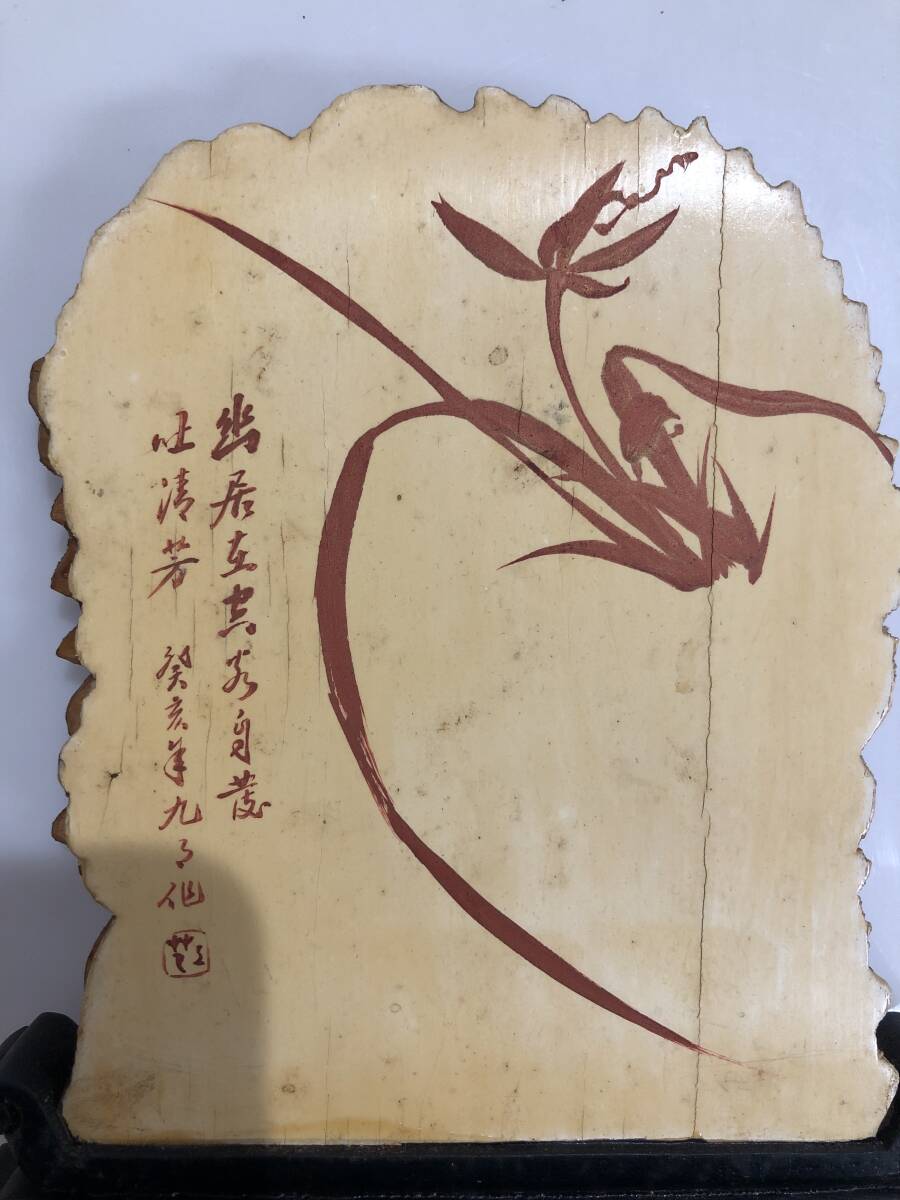 幽居在空谷自發
吐清芳 癸亥年九月作